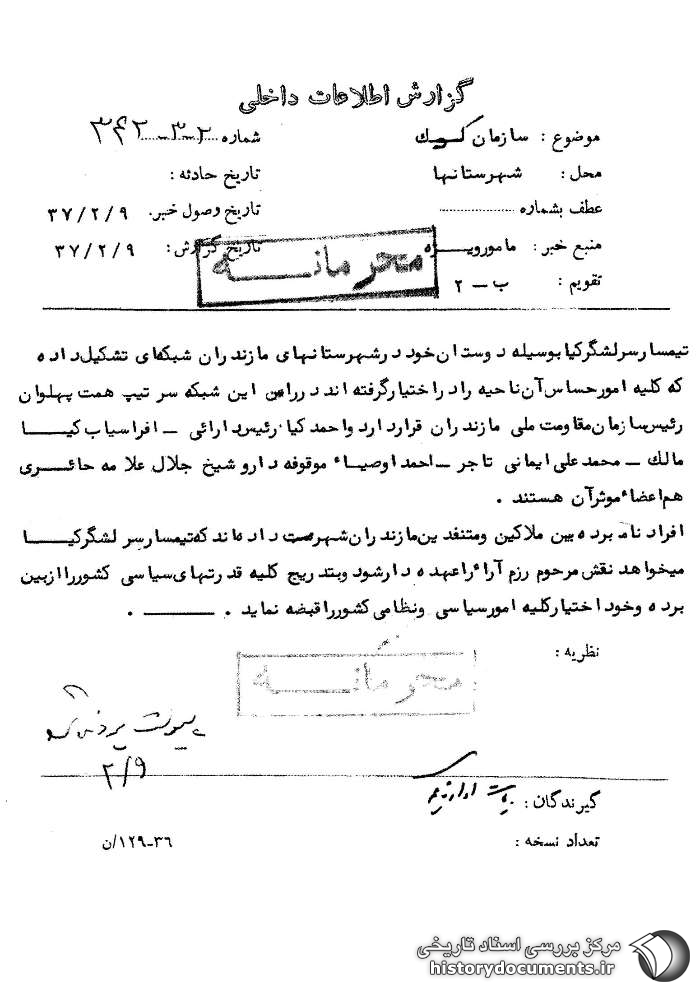 گزارش اطلاعات داخلی
موضوع : سازمان کوک
شماره ۳۲-۳۴۲
محل : شهرستانها
تاریخ حادثه :
عطف بشماره
تاریخ وصول خبر. ۳۷/۲/۹
منبع خبر : مامورویژه
تاریخ گزارش : ۳۷/۲/۹
تقویم : ب – ۲
محرمانه
تیمسارسرلشگرکیا بوسیله دوستان خود درشهرستانهای مازندران شبکهای تشکیل داده
که کلیه امورحساس آن ناحیه رادراختیارگرفته اند درراس این شبکه سرتیپ همت پهلوان
رئیس سازمان مقاومت ملی مازندران قراردارد واحمد کیا رئیس دارائی – افراسیاب کیا
مالک – محمدعلی ایمانی تاجر – احمد اوصیاء موقوفه دارو شیخ جلال علامه حائری
هم اعضاء موثرآن هستند .
افراد نامبرده بین ملاکین ومتنفذین مازندران شهرت داده اند که تیمسارسرلشگرکیا
میخواهد نقش مرحوم رزم آراء راعهده دارشود وبتدریج کلیه قدرتهای سیاسی کشورراازبین
برده وخود اختیارکلیه امورسیاسی ونظامی کشورراقبضه نماید . ــــــ .
نظریه :
محرمانه
۲/۹
گیرندگان : ریاست اداره
تعداد نسخه :
۱۲۹-۳۶/ن
مرکز بررسی اسناد تاریخی
historydocuments.ir